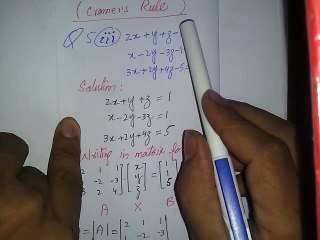 (Cramer's Rule)
Q 5 (iii) 2x+y+z-
x-2y-3z-1
3x+2y+4z-5=
Solution:
2x+y+z = 1
x-2y-3z = 1
3x+2y+4z = 5
Writing in matrix for
2 1 1 x 1
1 -2 -3 y = 1
3 2 4 z 5
A X B
= |A| = 2 1 1
1 -2 -3